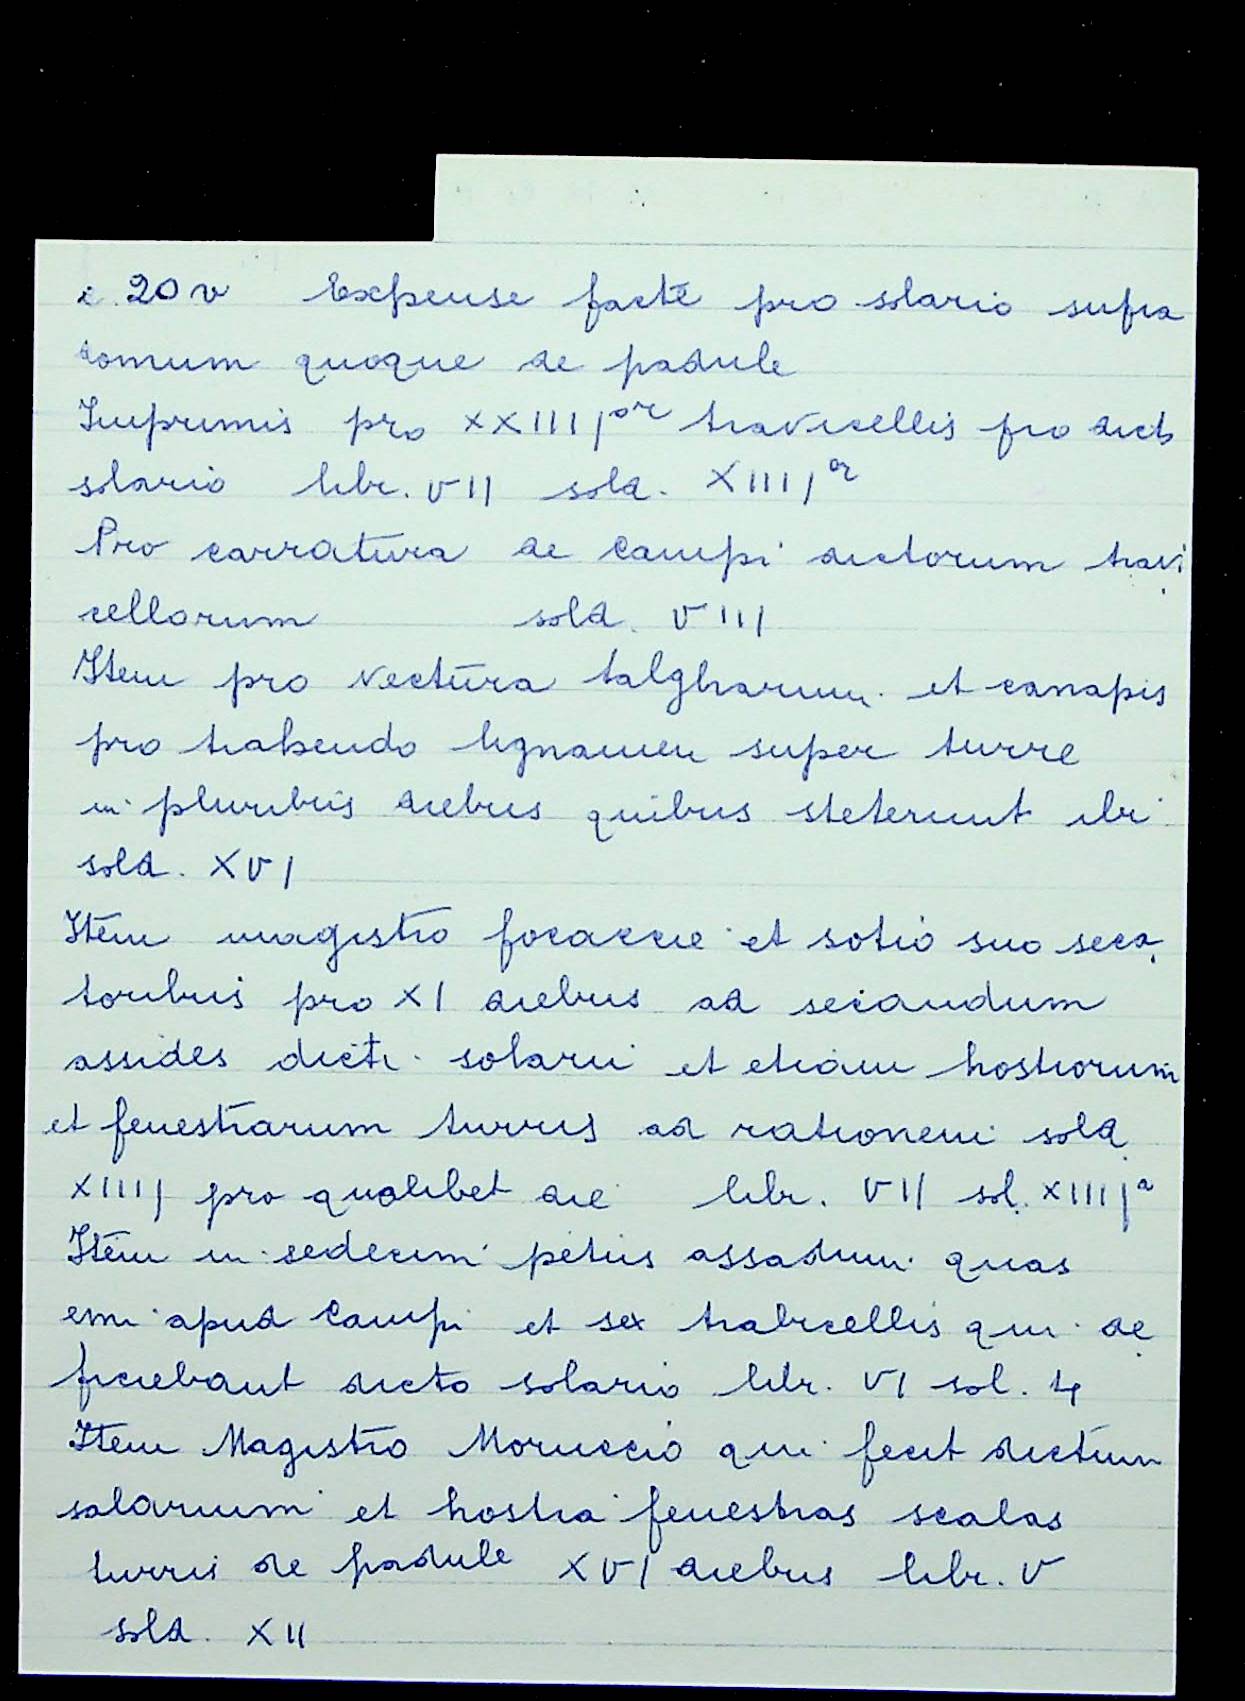 c. 20 v Expense facte pro solario supra
domum quoque de padule
Imprimis pro XXIIIJor travicellis pro dicto
solario libr. VII sold. XIIIJor
Pro carratura de Campi dictorum travi
cellorum sold. VIIJ
Item pro vectura talgharum et canapis
pro trahendo lignamen super turre
in pluribus diebus quibus steterunt ibi
sold. XVJ
Item magistro focaccie et sotio suo seca
toribus pro XI diebus ad secandum
assides dicti solarii et etiam hostiorum
et fenestrarum turris ad rationem sold.
XIIIJ pro qualibet die libr. VIJ sol. XIIIJa
Item in sedecim petiis assadum quas
emi apud Campi et sex trabicellis qui de
ficiebant dicto solario libr. VJ sol. 4
Item Magistro Moruccio qui fecit dictum
solarium et hostia fenestras scalas
turris de padule XVJ diebus libr. V
sold. XII